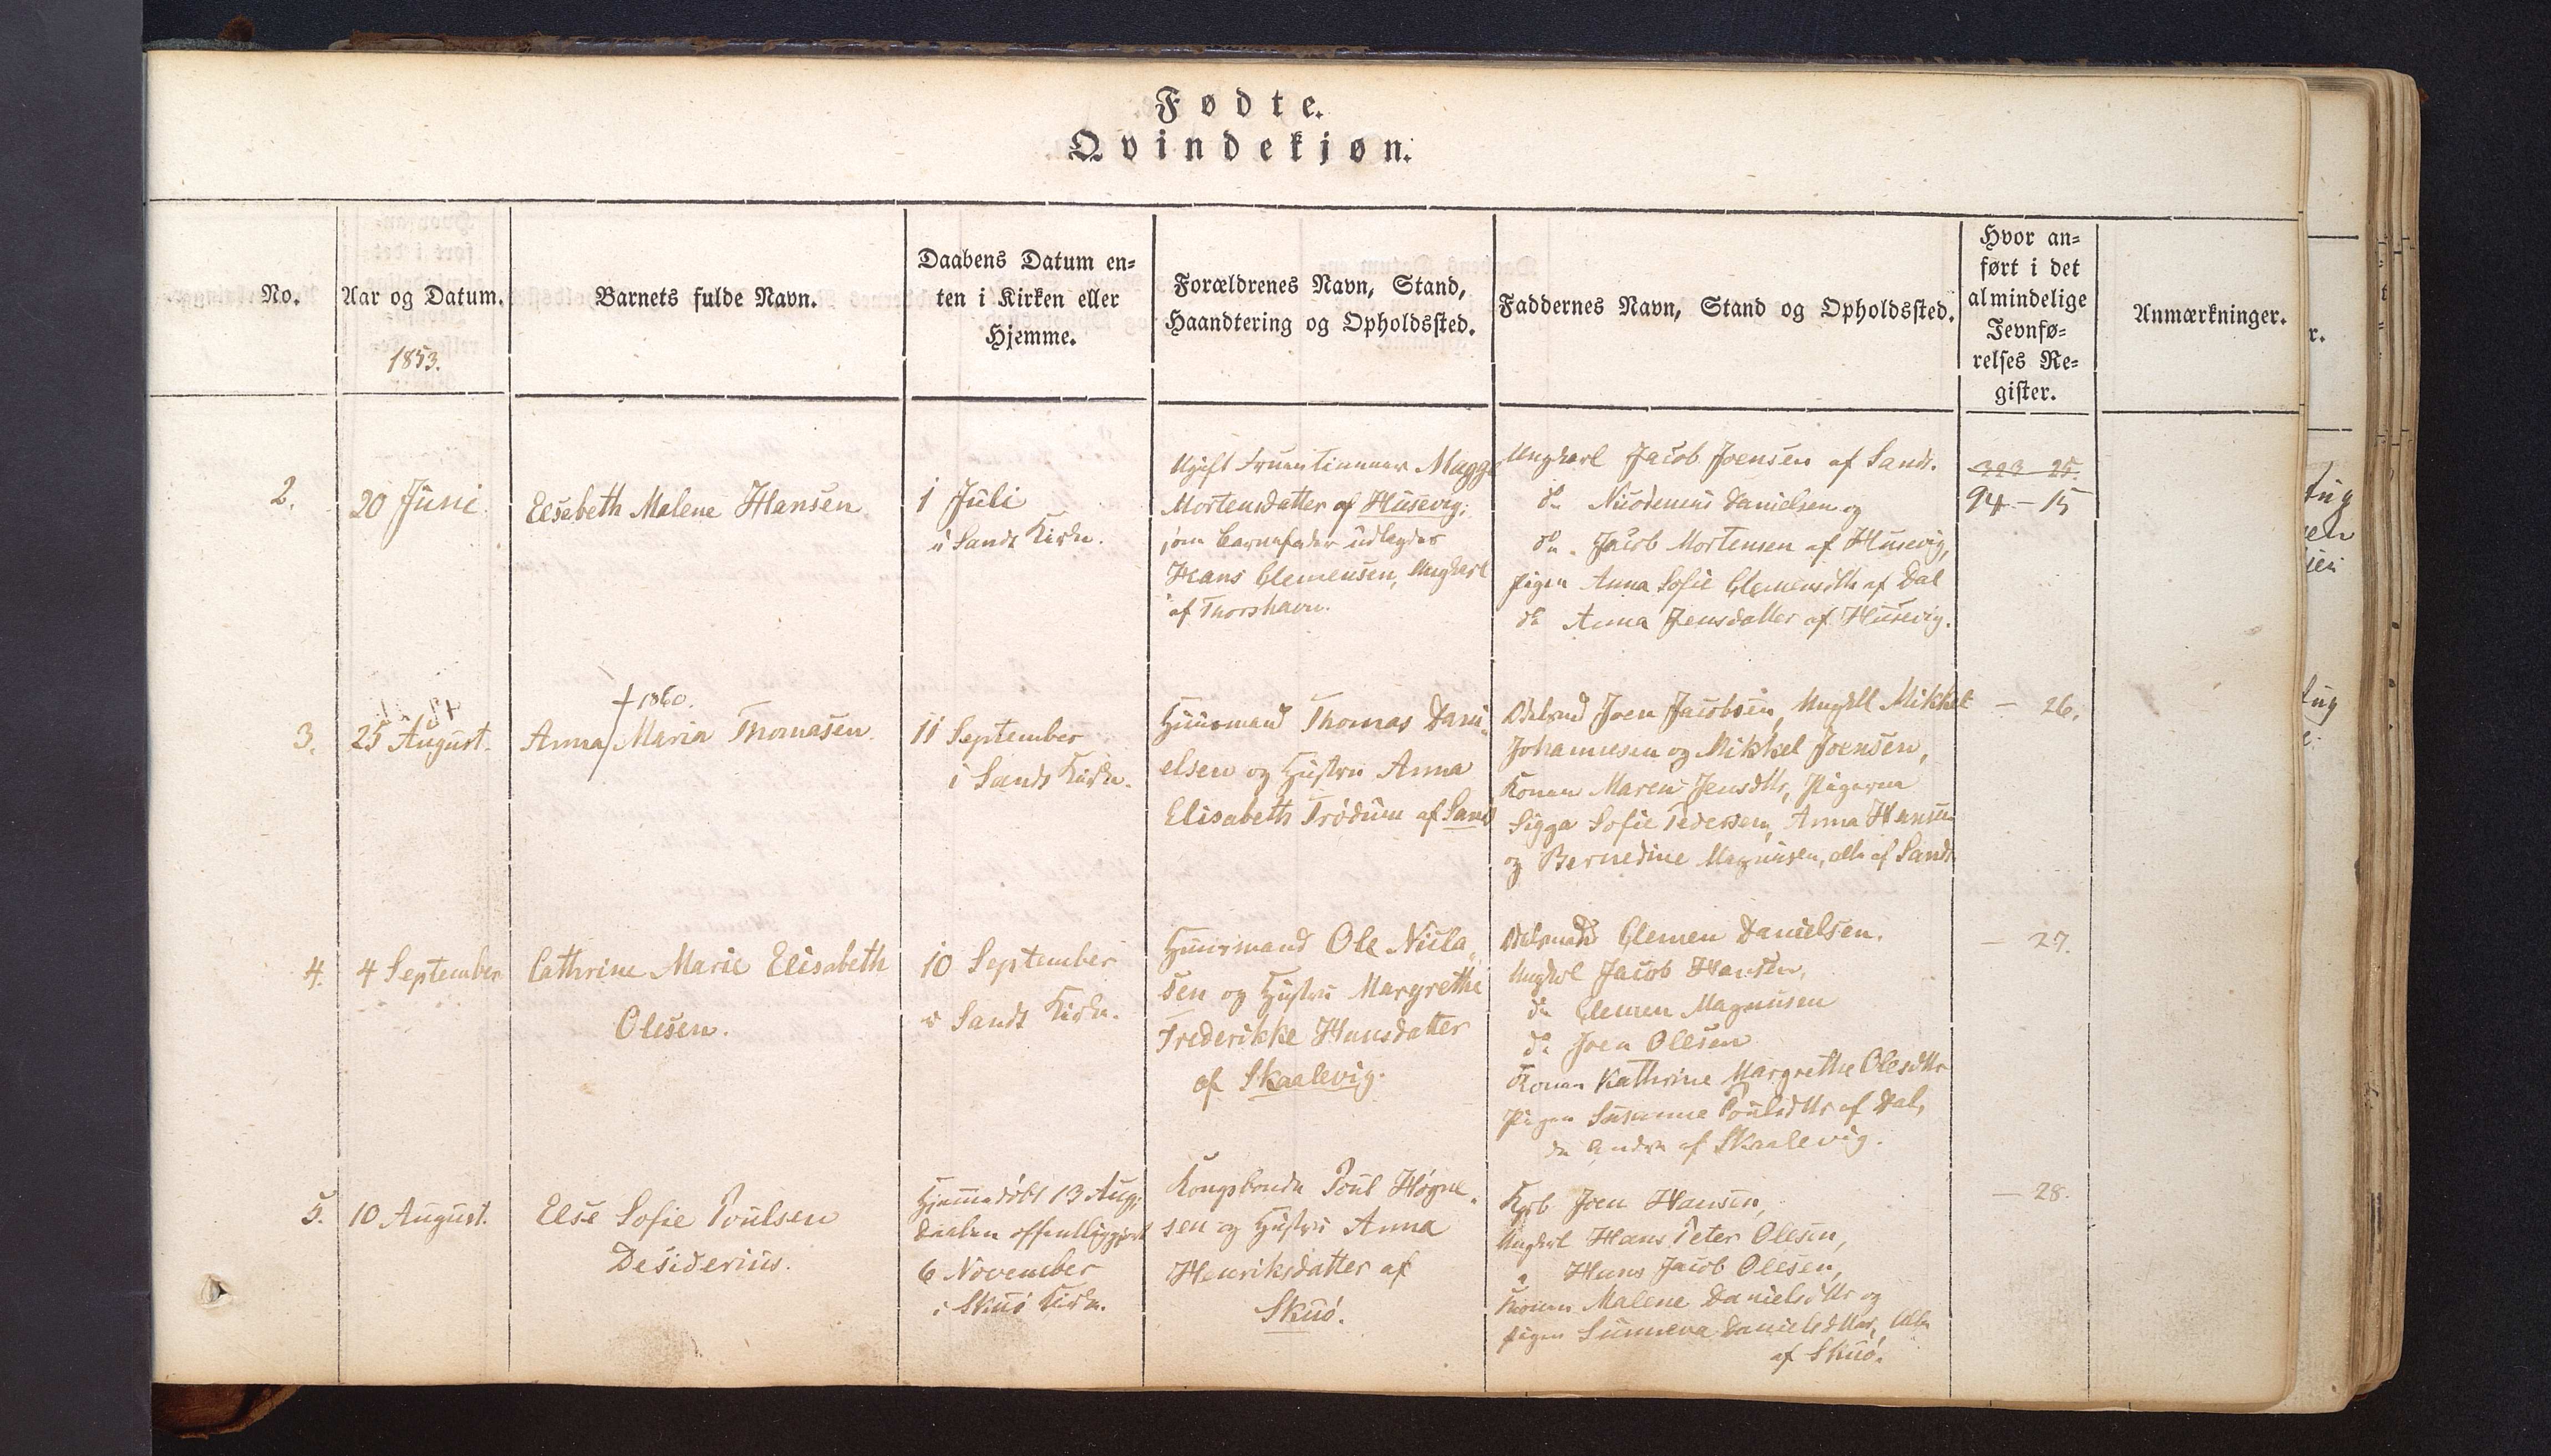 Fødte.
Qvindekjøn.
No.
Aar og Datum.
1853.
Barnets fulde Navn.
Daabens Datum en-
ten i Kirken eller
Hjemme.
Forældrenes Navn, Stand,
Haandtering og Opholdssted.
Faddernes Navn, Stand og Opholdssted.
Hvor an-
ført i det
almindelige
Jevnfø-
relses Re-
gister.
Anmærkninger.
2.
20 Juni
Elsebeth Malene Hansen
1 Juli
i Sands Kirke.
Ugift Fruentimmer Magge
Mortensdatter af Husevig;
som Barnefader udlagdes
Hans Clemensen, Ungkarl
af Thorshavn.
Ungkarl Jacob Joensen af Sand.
do Nicodemus Danielsen og
do. Jacob Mortensen af Husevig,
Pigen Anna Sofie Clemensdtr af Dal
do Anna Jensdatter af Husevig.
94 - 15
3.
25 August.
† 1860.
Anna/Maria Thomasen.
11 September
i Sands Kirke.
Huusmand Thomas Dani-
elsen og Hustru Anna
Elisabeth Trødum af Sand
Odelsmd Joen Jacobsen, Ungkll Mikkel
Johannesen og Mikkel Joensen,
Konen Maren Jensdtr, Pigerne
Sigga Sofie Pedersen, Anna Hansen
og Bernedine Magnusen, alle af Sand.
— 26.
4.
4 September
Cathrine Marie Elisabeth
Olesen.
10 September
i Sands Kirke.
Huusmand Ole Nicla-
sen og Hustru Margrethe
Frederikke Hansdatter
af Skaalevig.
Odelsmand Clemen Danielsen.
Ungkrl Jacob Hansen,
do Clemen Magnusen
do Joen Olesen
Konen Kathrine Margrethe Olesdtr
Pigen Susanne Poulsdtr af Dal,
de andre af Skaalevig.
— 27.
5.
10 August.
Else Sofie Poulsen
Desiderius.
Hjemmedøbt 13 Aug;
Daaben offentliggjort
6 November
i Skuø Kirke.
Kongsbonde Poul Høgne-
sen og Hustru Anna
Henriksdatter af
Skuø.
Kgsb Joen Hansen,
Ungkrl Hans Peter Olesen,
" Hans Jacob Olesen,
Konen Malene Danielsdtr og
Pigen Sunneva Danielsdtter, alle
af Skuø.
— 28.